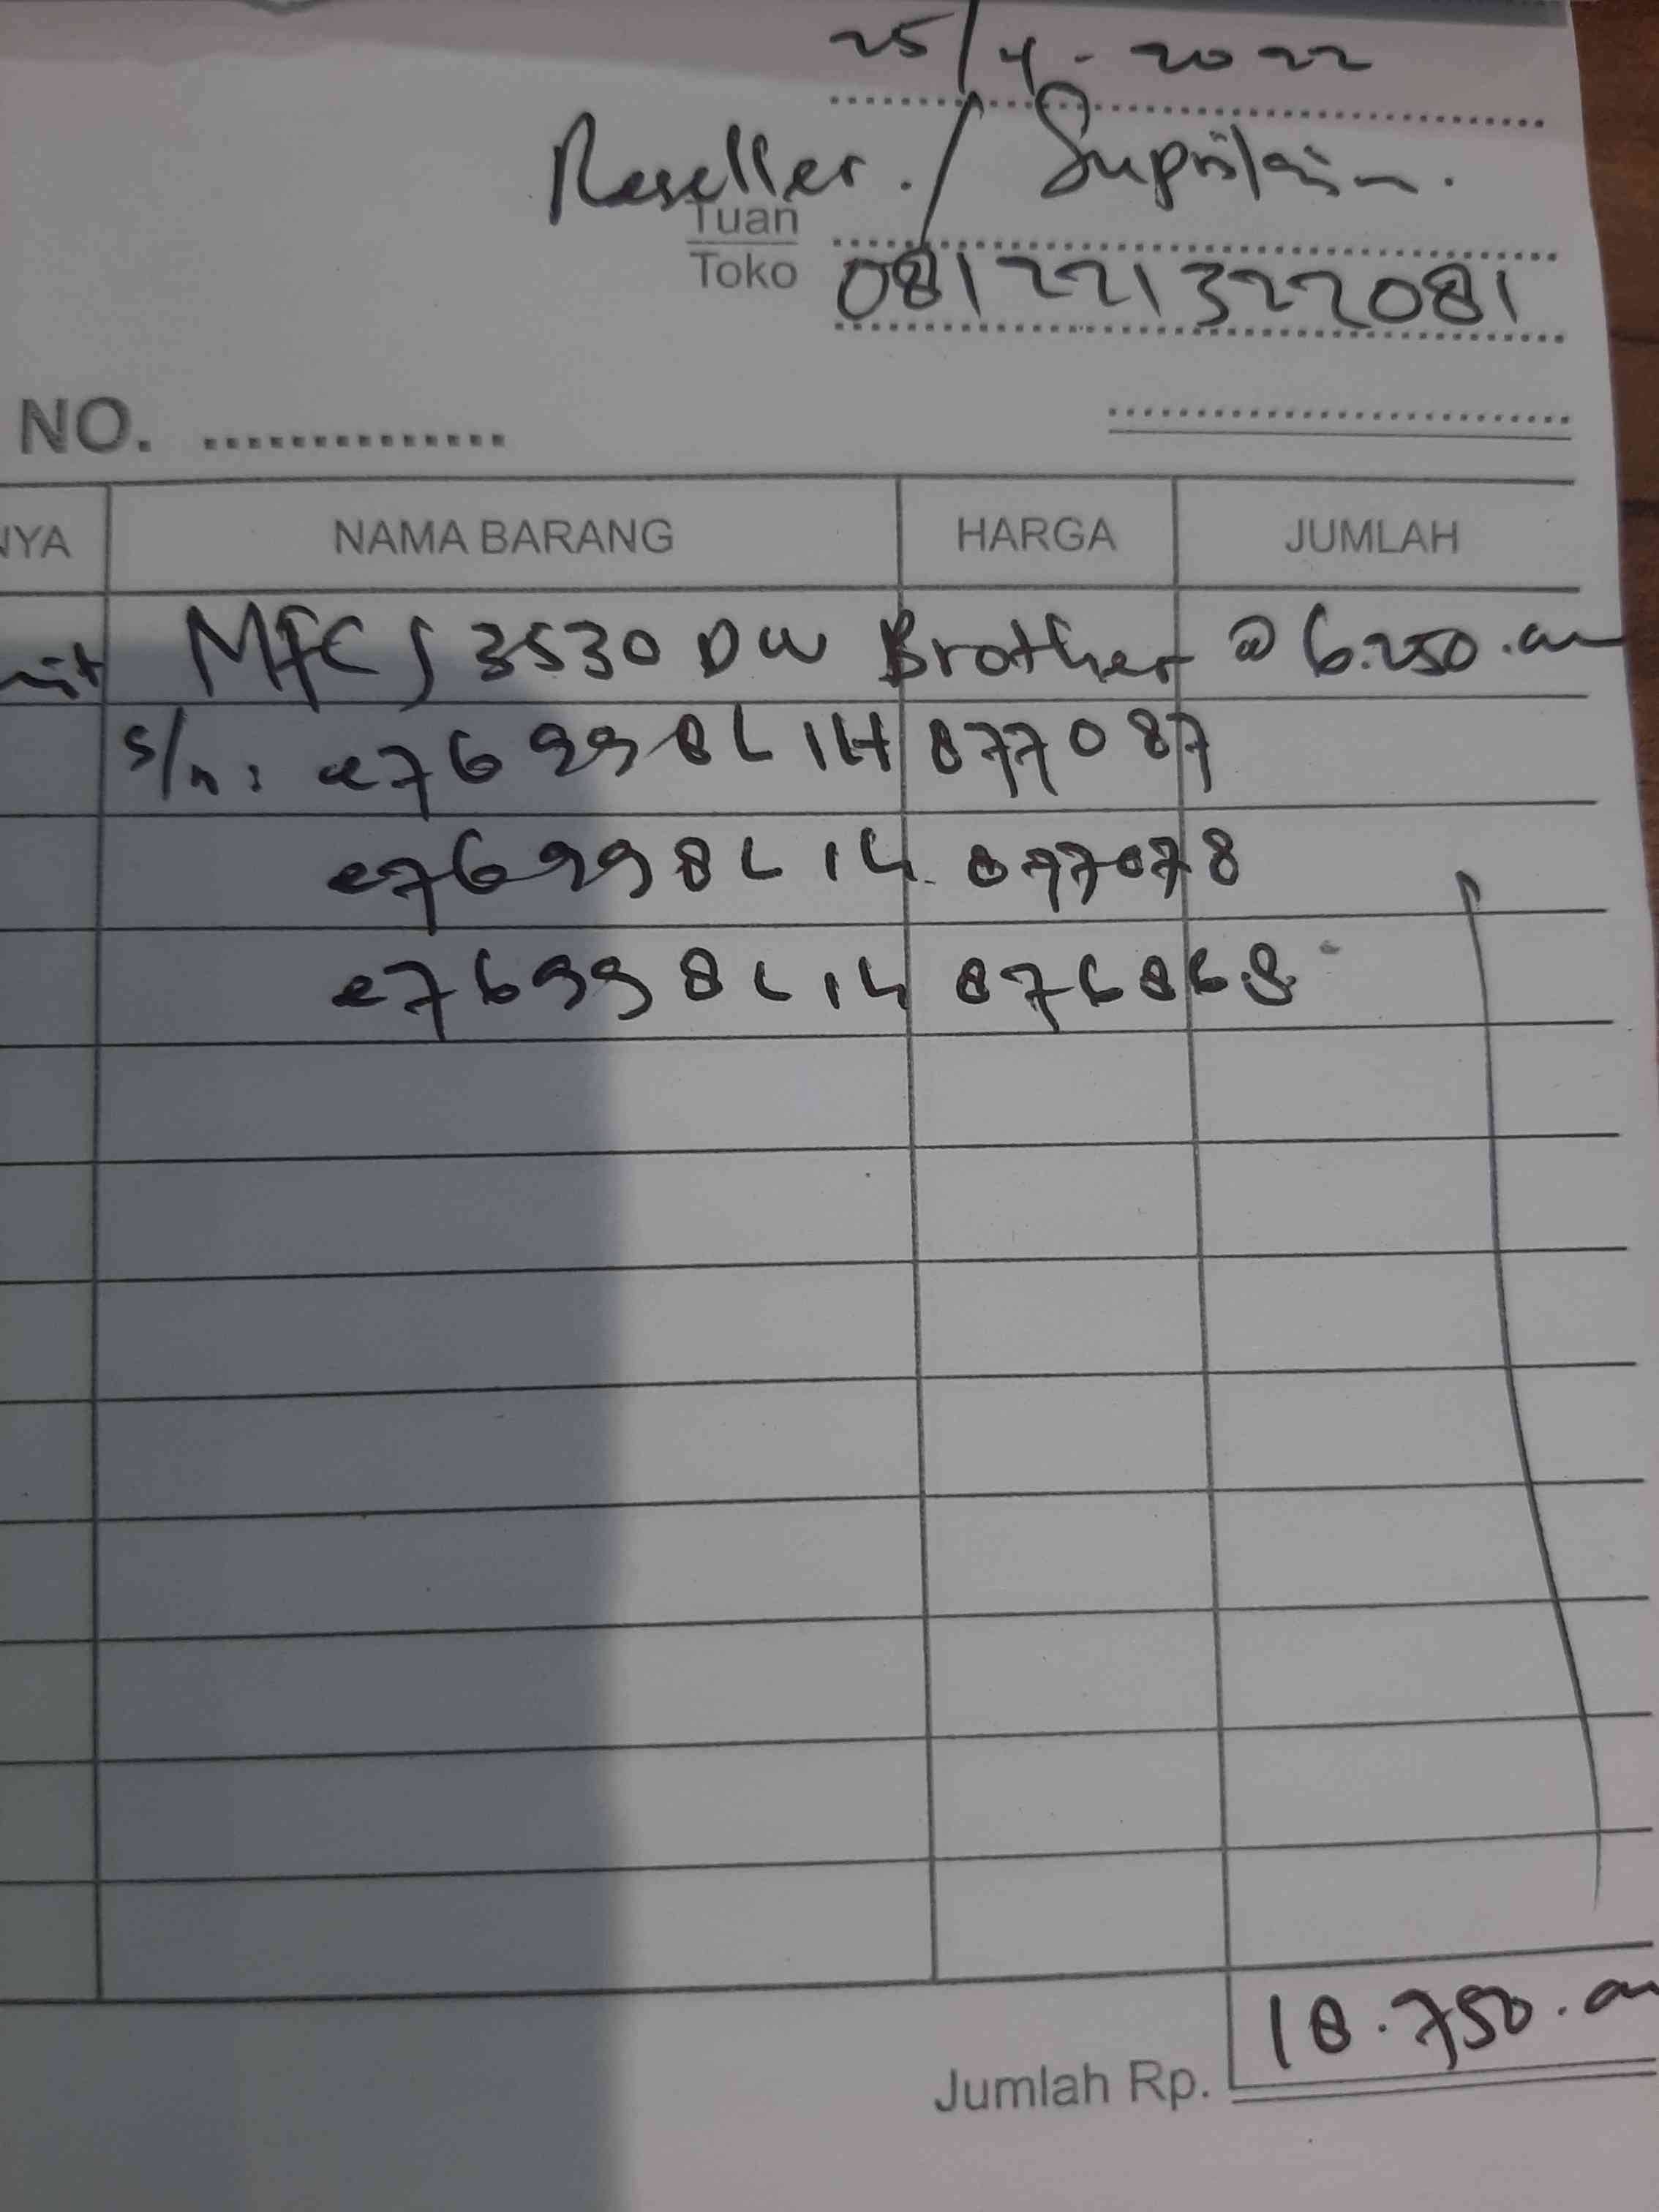 25/4-2022
Reseller. / Supri
Tuan
Toko 081221322081
NO. ..............
NYA NAMA BARANG HARGA JUMLAH
nit MFC J 3530 DW Brother @ 6.250.00
s/n: e76998L1H877087
e76998L1H877078
e76998L1H876868
18.750.00
Jumlah Rp.